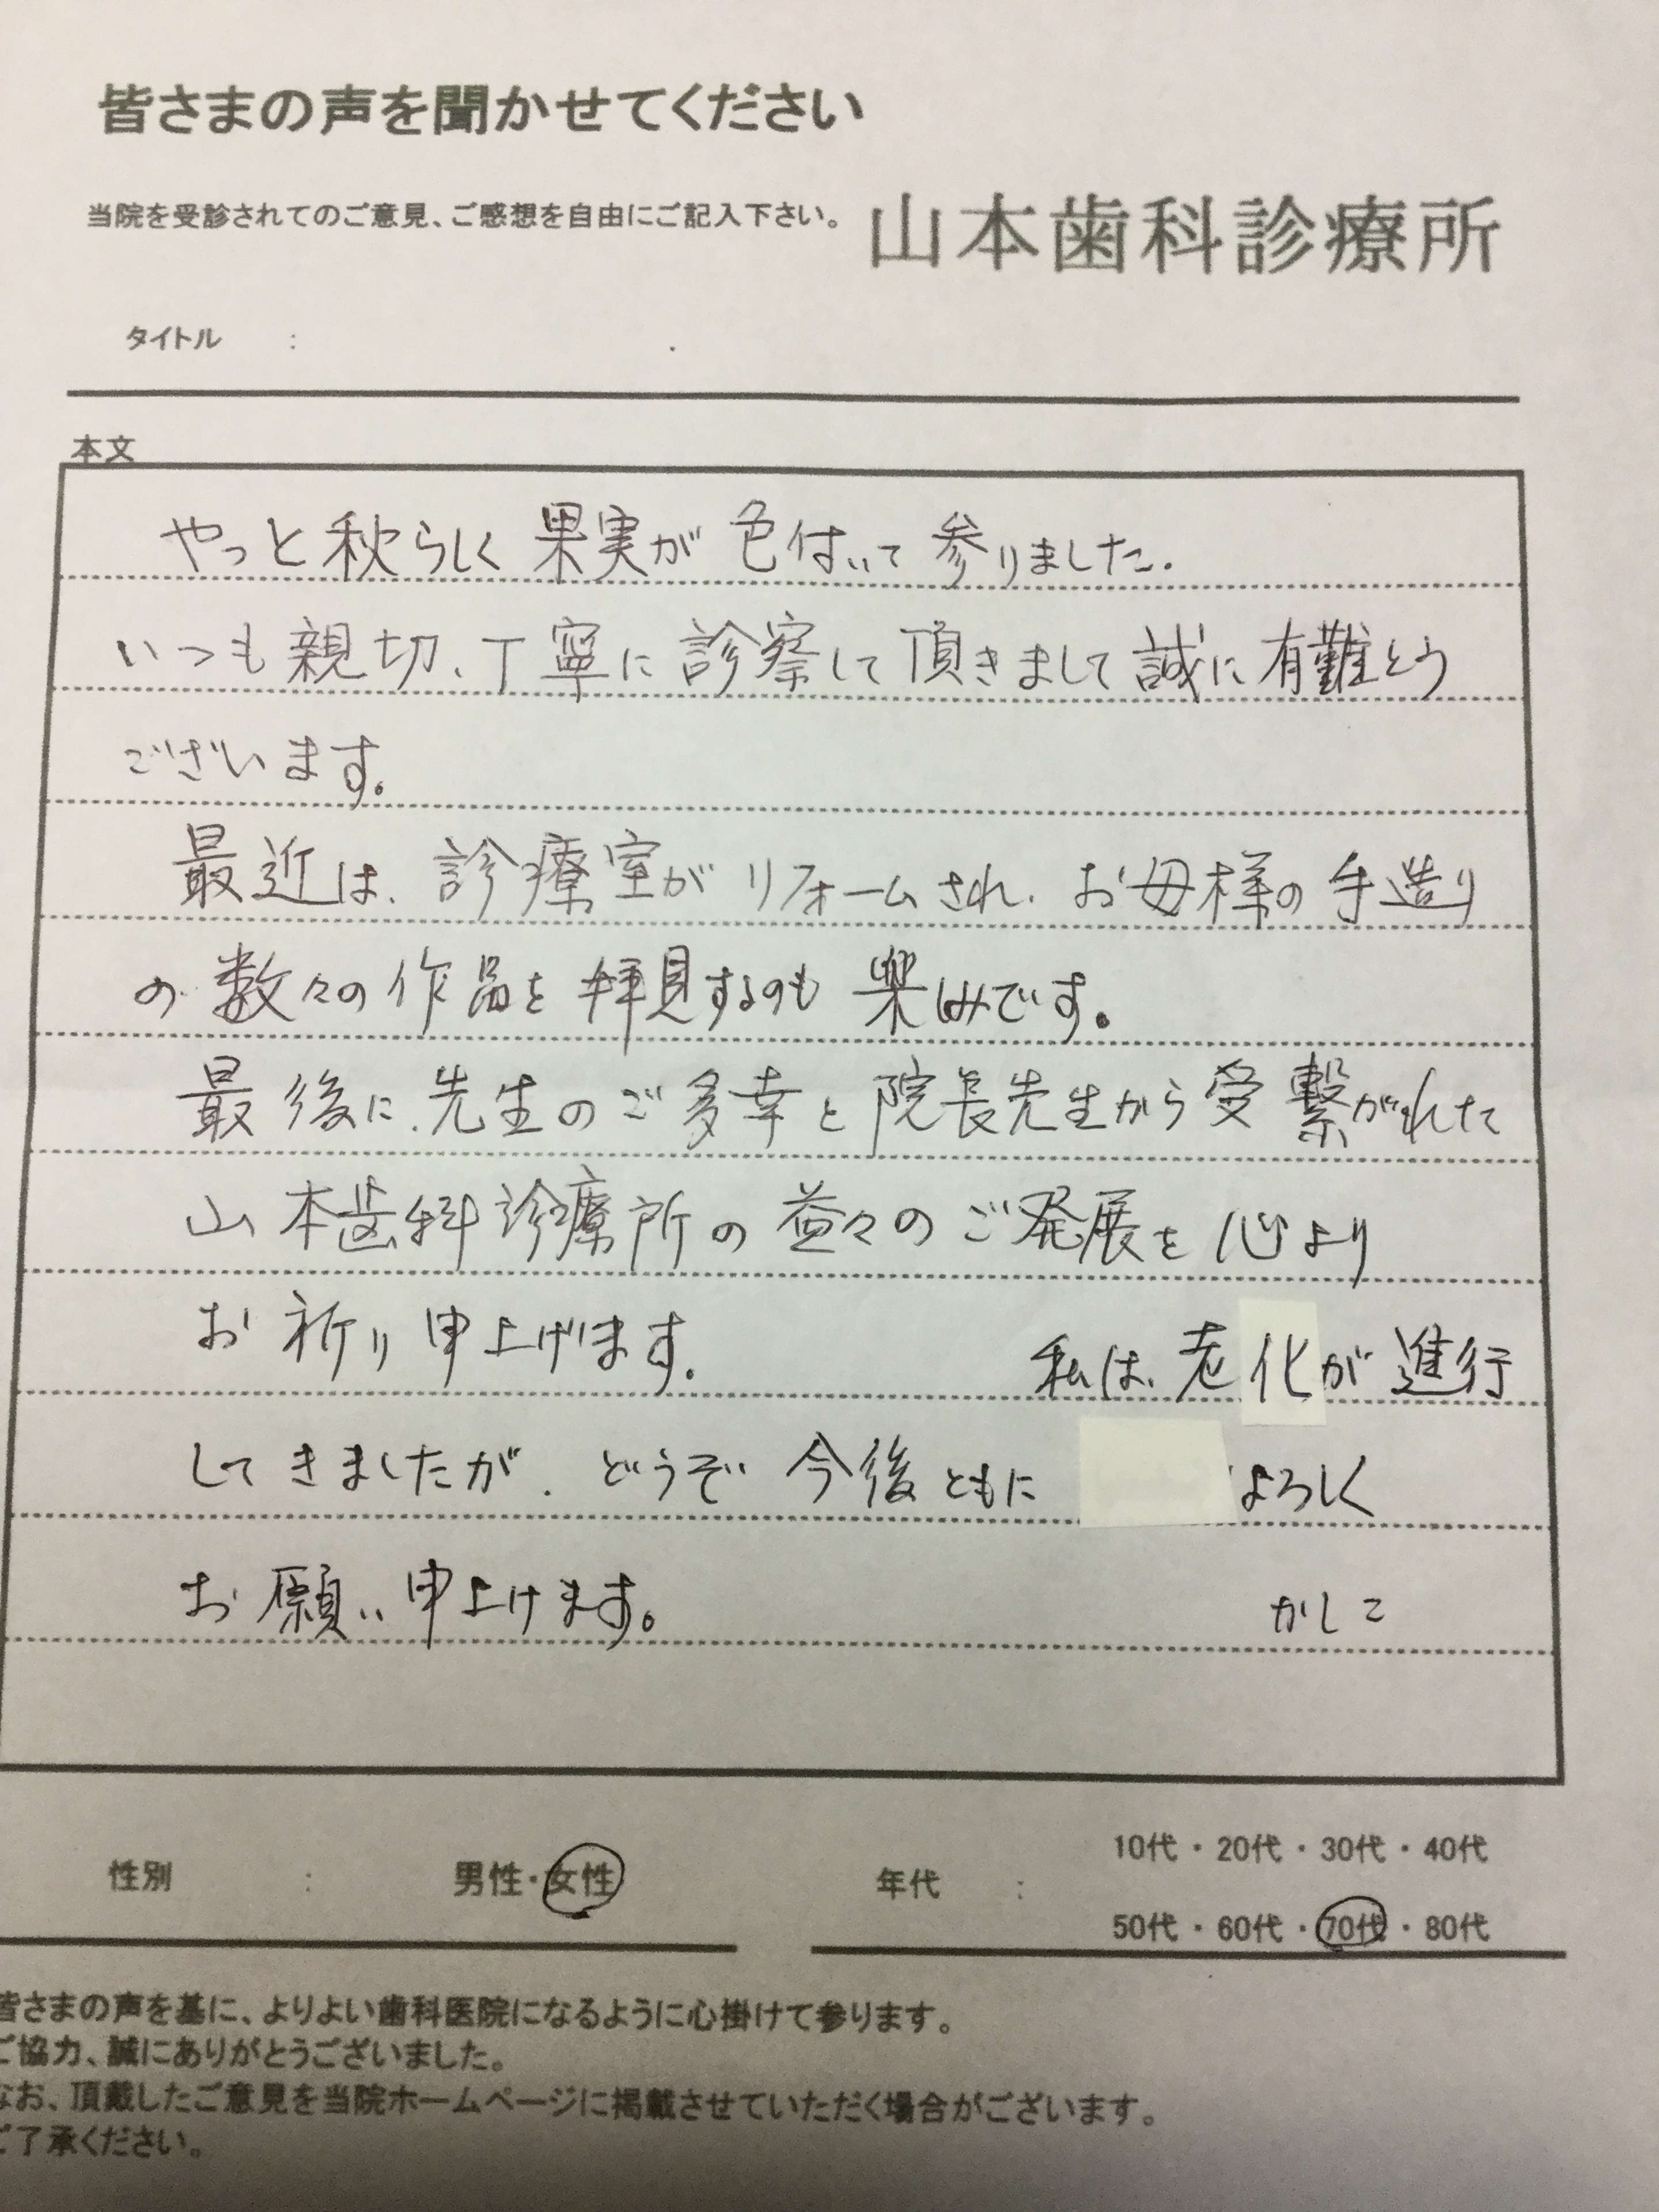 皆さまの声を聞かせてください
当院を受診されてのご意見、ご感想を自由にご記入下さい。 山本歯科診療所
タイトル :
本文
やっと秋らしく果実が色付いて参りました.
いつも親切、丁寧に診察して頂きまして誠に有難とう
ございます。
最近は、診療室がリフォームされ、お母様の手造り
の数々の作品を拝見するのも楽しみです。
最後に、先生のご多幸と院長先生から受繋がれた
山本歯科診療所の益々のご発展を心より
お祈り申上げます。 私は、老化が進行
してきましたが、どうぞ今後ともに よろしく
お願い申上げます。 かしこ
性別 : 男性・女性 年代 : 10代・20代・30代・40代
50代・60代・70代・80代
皆さまの声を基に、よりよい歯科医院になるように心掛けて参ります。
ご協力、誠にありがとうございました。
なお、頂戴したご意見を当院ホームページに掲載させていただく場合がございます。
ご了承ください。